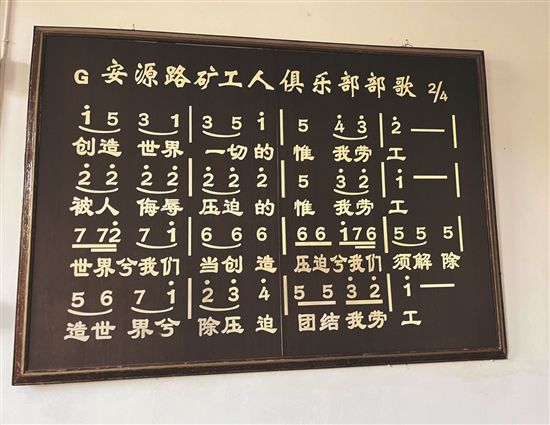 G 安源路矿工人俱乐部部歌 2/4
i 5 3 1 | 3 5 i | 5 4̇ 3̇ | 2̇ — |
创造 世界 一切的 惟 我劳 工
2̇ 2̇ 2̇ 2̇ | 2̇ 2̇ 2̇ | 5 3̇ 2̇ | i — |
被人 侮辱 压迫的 惟 我劳 工
7 7 2̇ 7 i | 6 6 6 | 6 6 i 7 6 | 5 5 5 |
世界兮我们 当创 造 压迫兮我们 须解 除
5 6 7 i | 2̇ 3̇ 4̇ | 5 5 3̇ 2̇ | i — |
造世 界兮 除压 迫 团结我劳 工